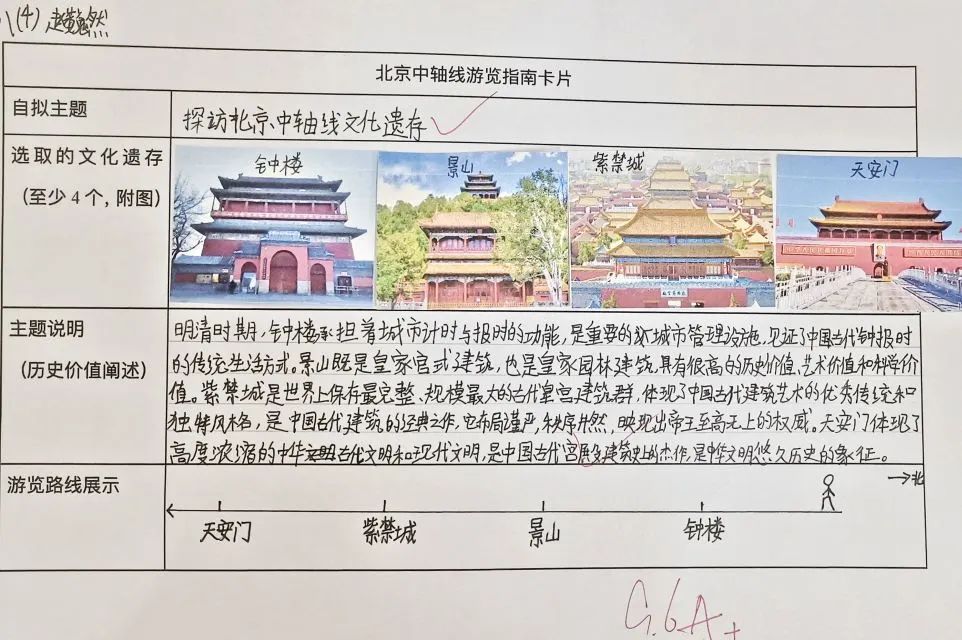 (4) 赵然
北京中轴线游览指南卡片
自拟主题
探访北京中轴线文化遗存
选取的文化遗存
(至少 4 个，附图)
钟楼
景山
紫禁城
天安门
主题说明
(历史价值阐述)
明清时期，钟楼承担着城市计时与报时的功能，是重要的城市管理设施，见证了中国古代钟报时
的传统生活方式。景山既是皇家宫式建筑，也是皇家园林建筑，具有很高的历史价值、艺术价值和科学价
值。紫禁城是世界上保存最完整、规模最大的古代皇宫建筑群，体现了中国古代建筑艺术的优秀传统和
独特风格，是中国古代建筑的经典之作，它布局谨严，秩序井然，映现出帝王至高无上的权威。天安门体现了
高度浓缩的中华古代文明和现代文明，是中国古代宫殿建筑史上的杰作，是中华文明悠久历史的象征。
游览路线展示
→北
天安门
紫禁城
景山
钟楼
G.6A+